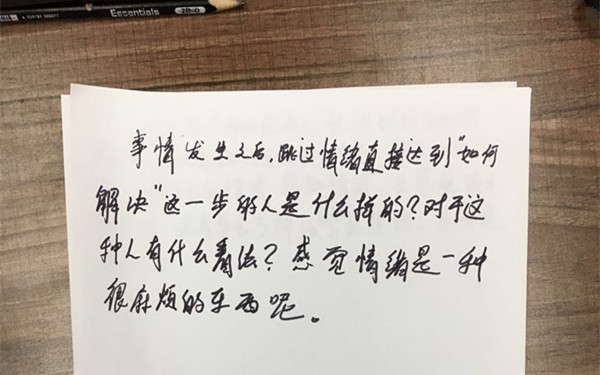 Essentials
事情发生之后,跳过情绪直接达到“如何
解决”这一步的人是什么样的?对于这
种人有什么看法?感觉情绪是一种
很麻烦的东西呢。